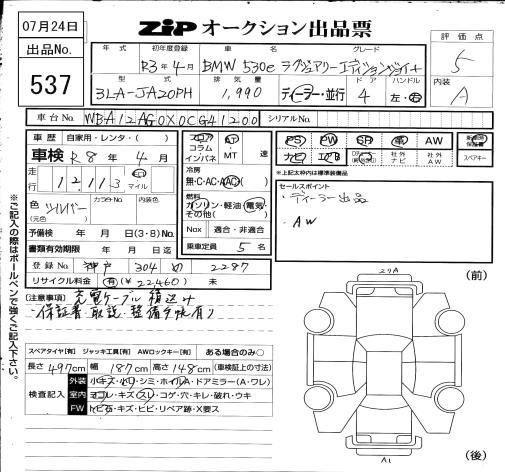 07月24日
ZIP オークション出品票
出品No.
537
年式 初年度登録 車名 グレード
R3年4月 BMW 530e ラグジュアリーエディションジョイ+
型式 排気量 ドア ハンドル
3LA-JA20PH 1,990 ディーラー・並行 4 左・右
評価点
5
内装
A
車台No. WBA12AG0X0CG41200 シリアルNo.
車歴 自家用・レンタ・( )
車検 R8年4月
走行 12,113 Km マイル
色 シルバー カラーNo. 内装色
(元色)
予備検 年 月 日(3・8)No.
書類有効期限 年 月 日迄
登録No. 神戸 304 め 2287
リサイクル料金 有(¥22460) 未
フロア コラム インパネ
AT・MT 速
冷房
無・C・AC・AAC
燃料
ガソリン・軽油・電気・その他( )
Nox 適合・非適合
乗車定員 5名
PS PW SR 革 AW
ナビ エアB 社外ナビ 社外AW
スペアキー
*上記太枠内は標準装備品
セールスポイント
・ディーラー出品
・AW
(注意事項) 充電ケーブル積込み
・保証書・取説・整備手帳有り
スペアタイヤ[有] ジャッキ工具[有] AWロックキー[有] ある場合のみ○
長さ497cm 幅187cm 高さ148cm (車検証上の寸法)
検査記入
外装 小キズ・小ワ・シミ・ホイルA・ドアミラー(A・ワレ)
室内 ヨゴレ・キズ・スレ・コゲ・穴・キレ・破れ・ウキ
FW トビ石・キズ・ヒビ・リペア跡・X要ス
※ご記入の際はボールペンで強くご記入下さい。
(前)
(後)
A1